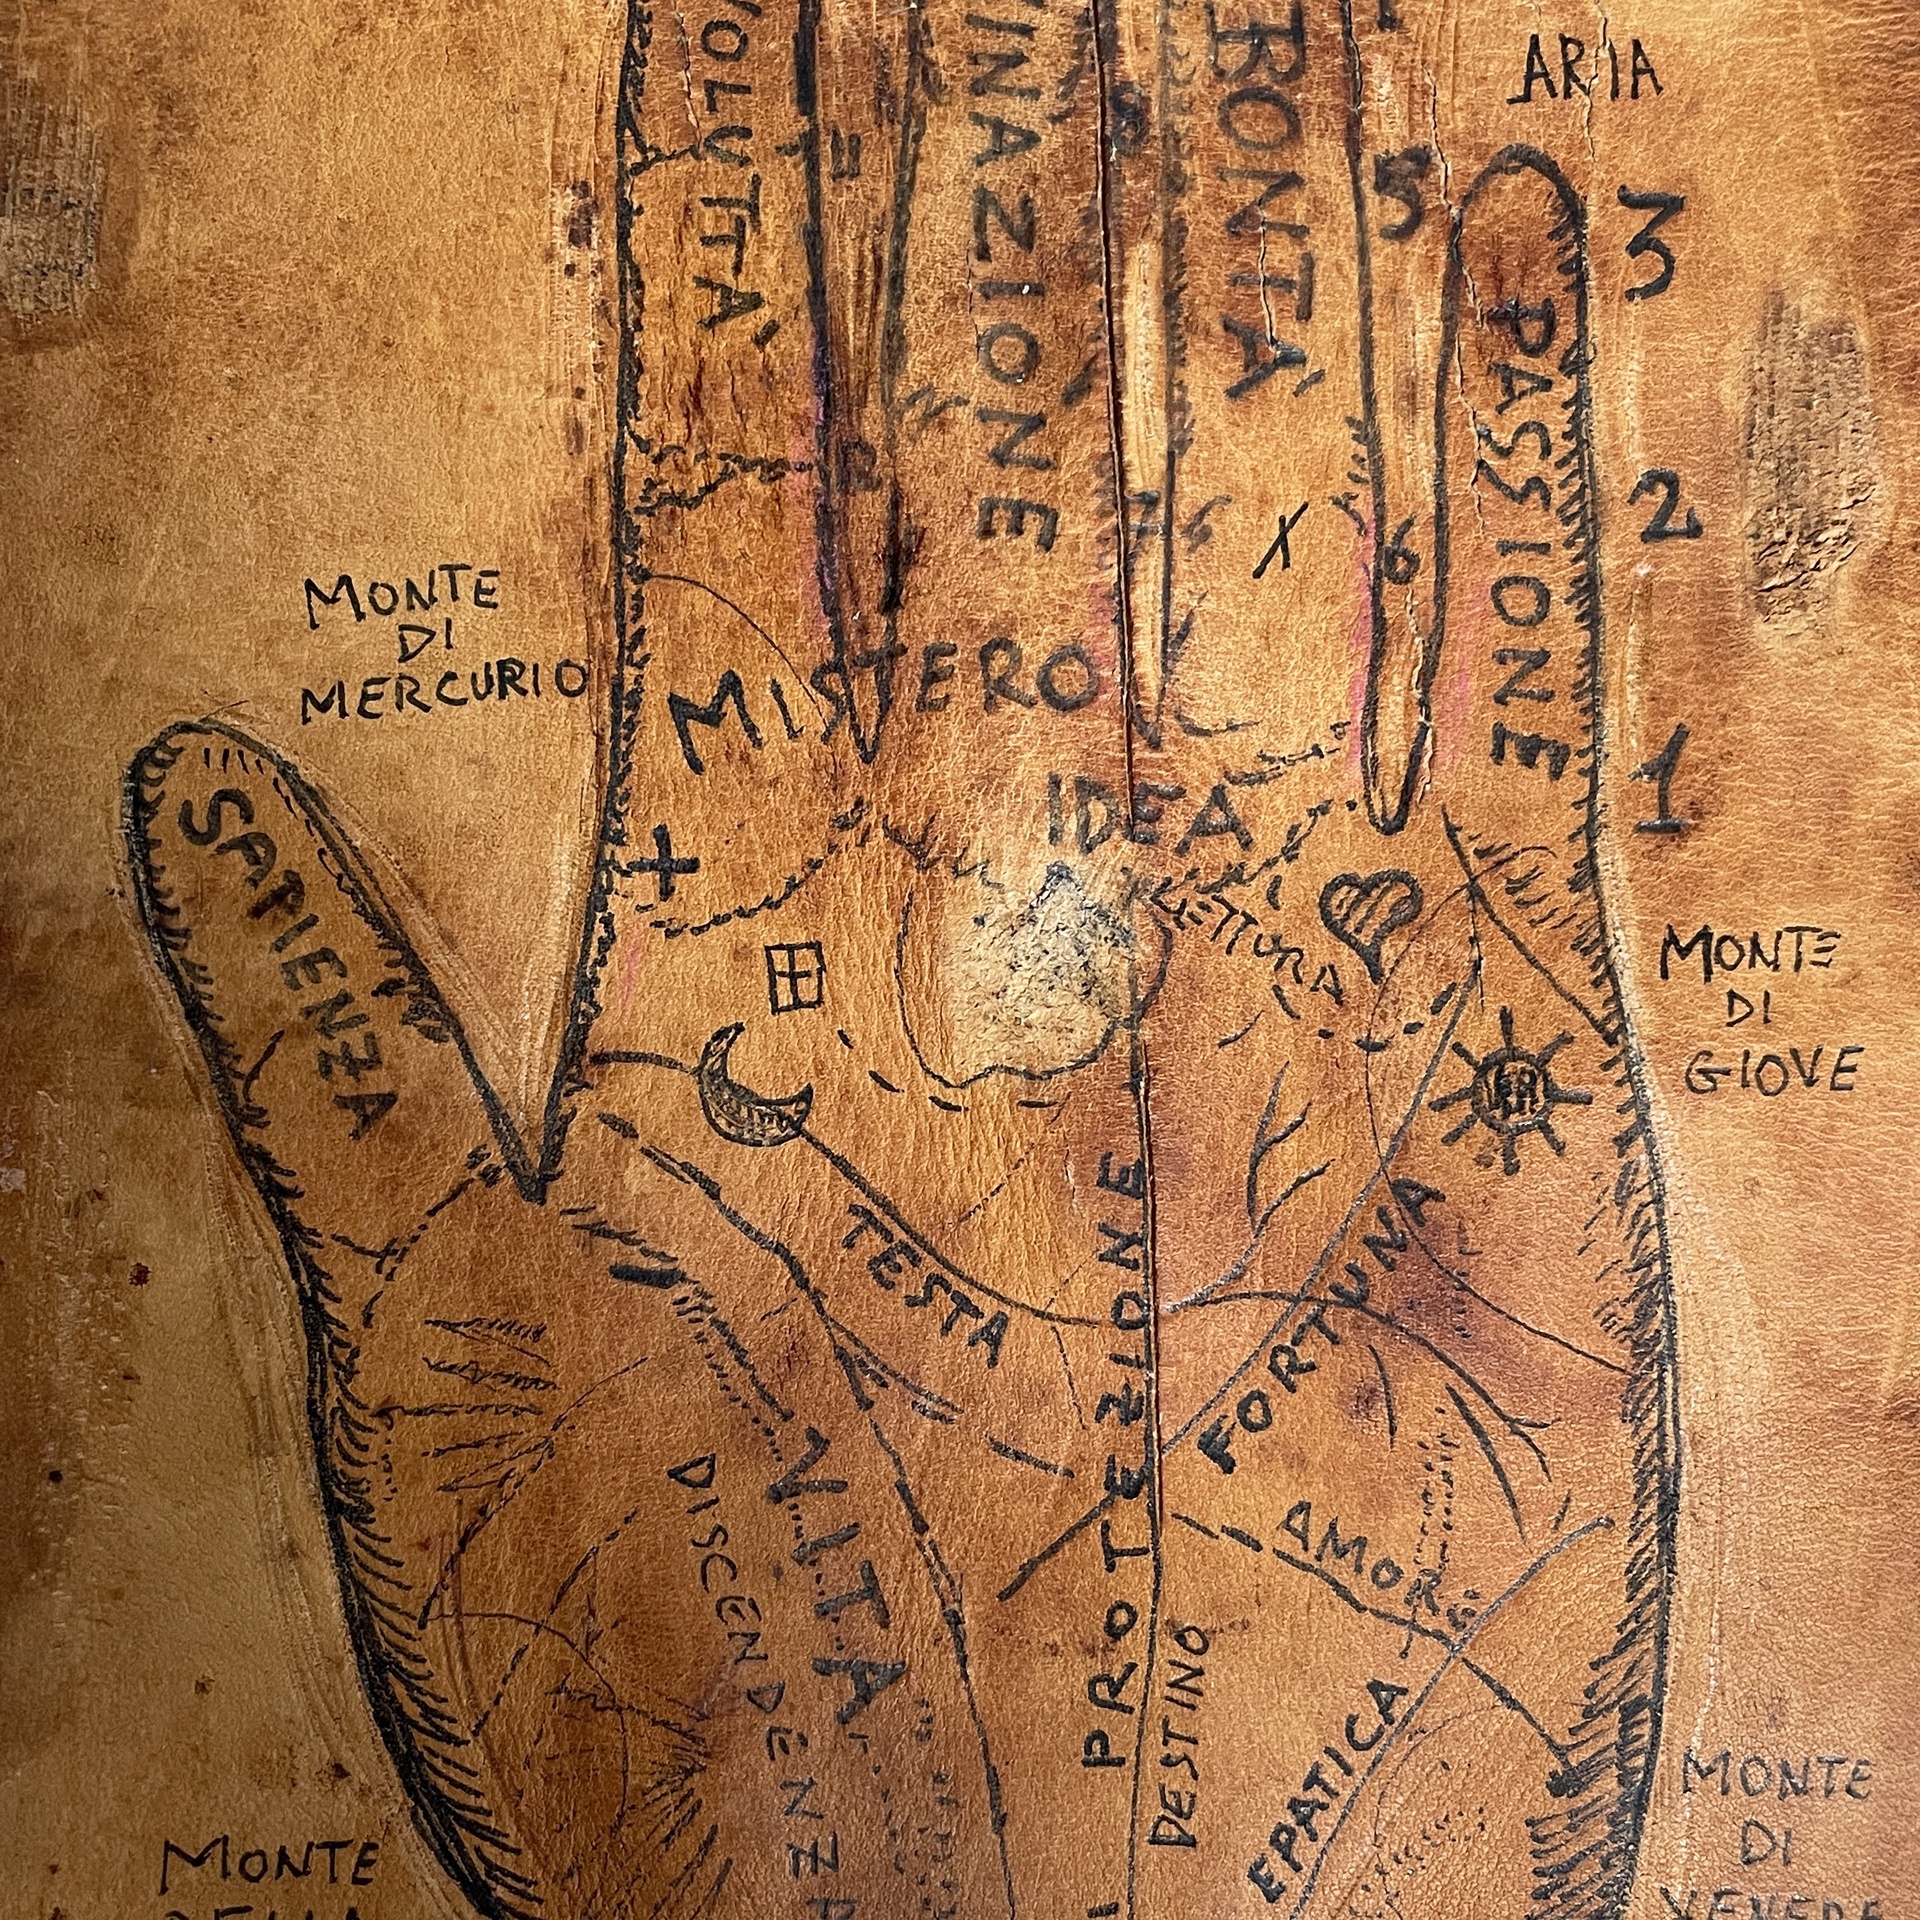 ARIA
VOLUTTA'
INAZIONE
BONTA'
5
PASSIONE
3
2
1
6
X
MONTE
DI
MERCURIO
MISTERO
IDEA
SAPIENZA
MONTE
DI
GIOVE
TESTA
PROTEZIONE
FORTUNA
VITA
DISCENDENZA
AMOR
DESTINO
EPATICA
MONTE
DI
VENERE
MONTE
DELLA